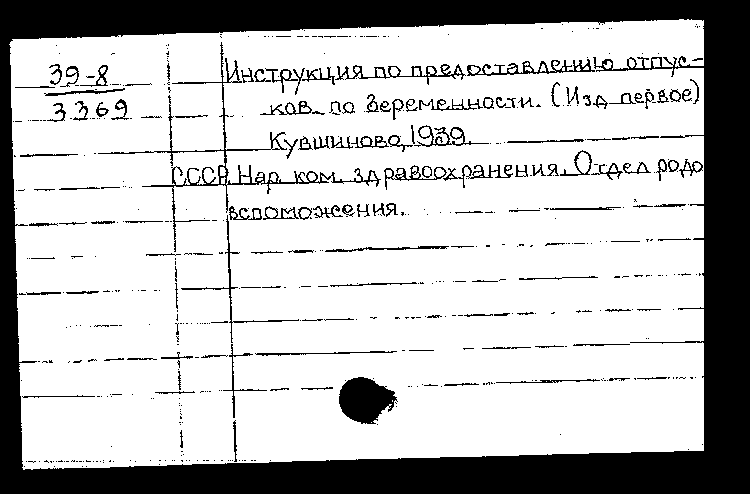 39-8
3369
Инструкция по предоставлению отпус-
ков по беременности. (Изд первое)
Кувшиново, 1939.
СССР. Нар. ком. здравоохранения. Отдел родо
вспоможения.